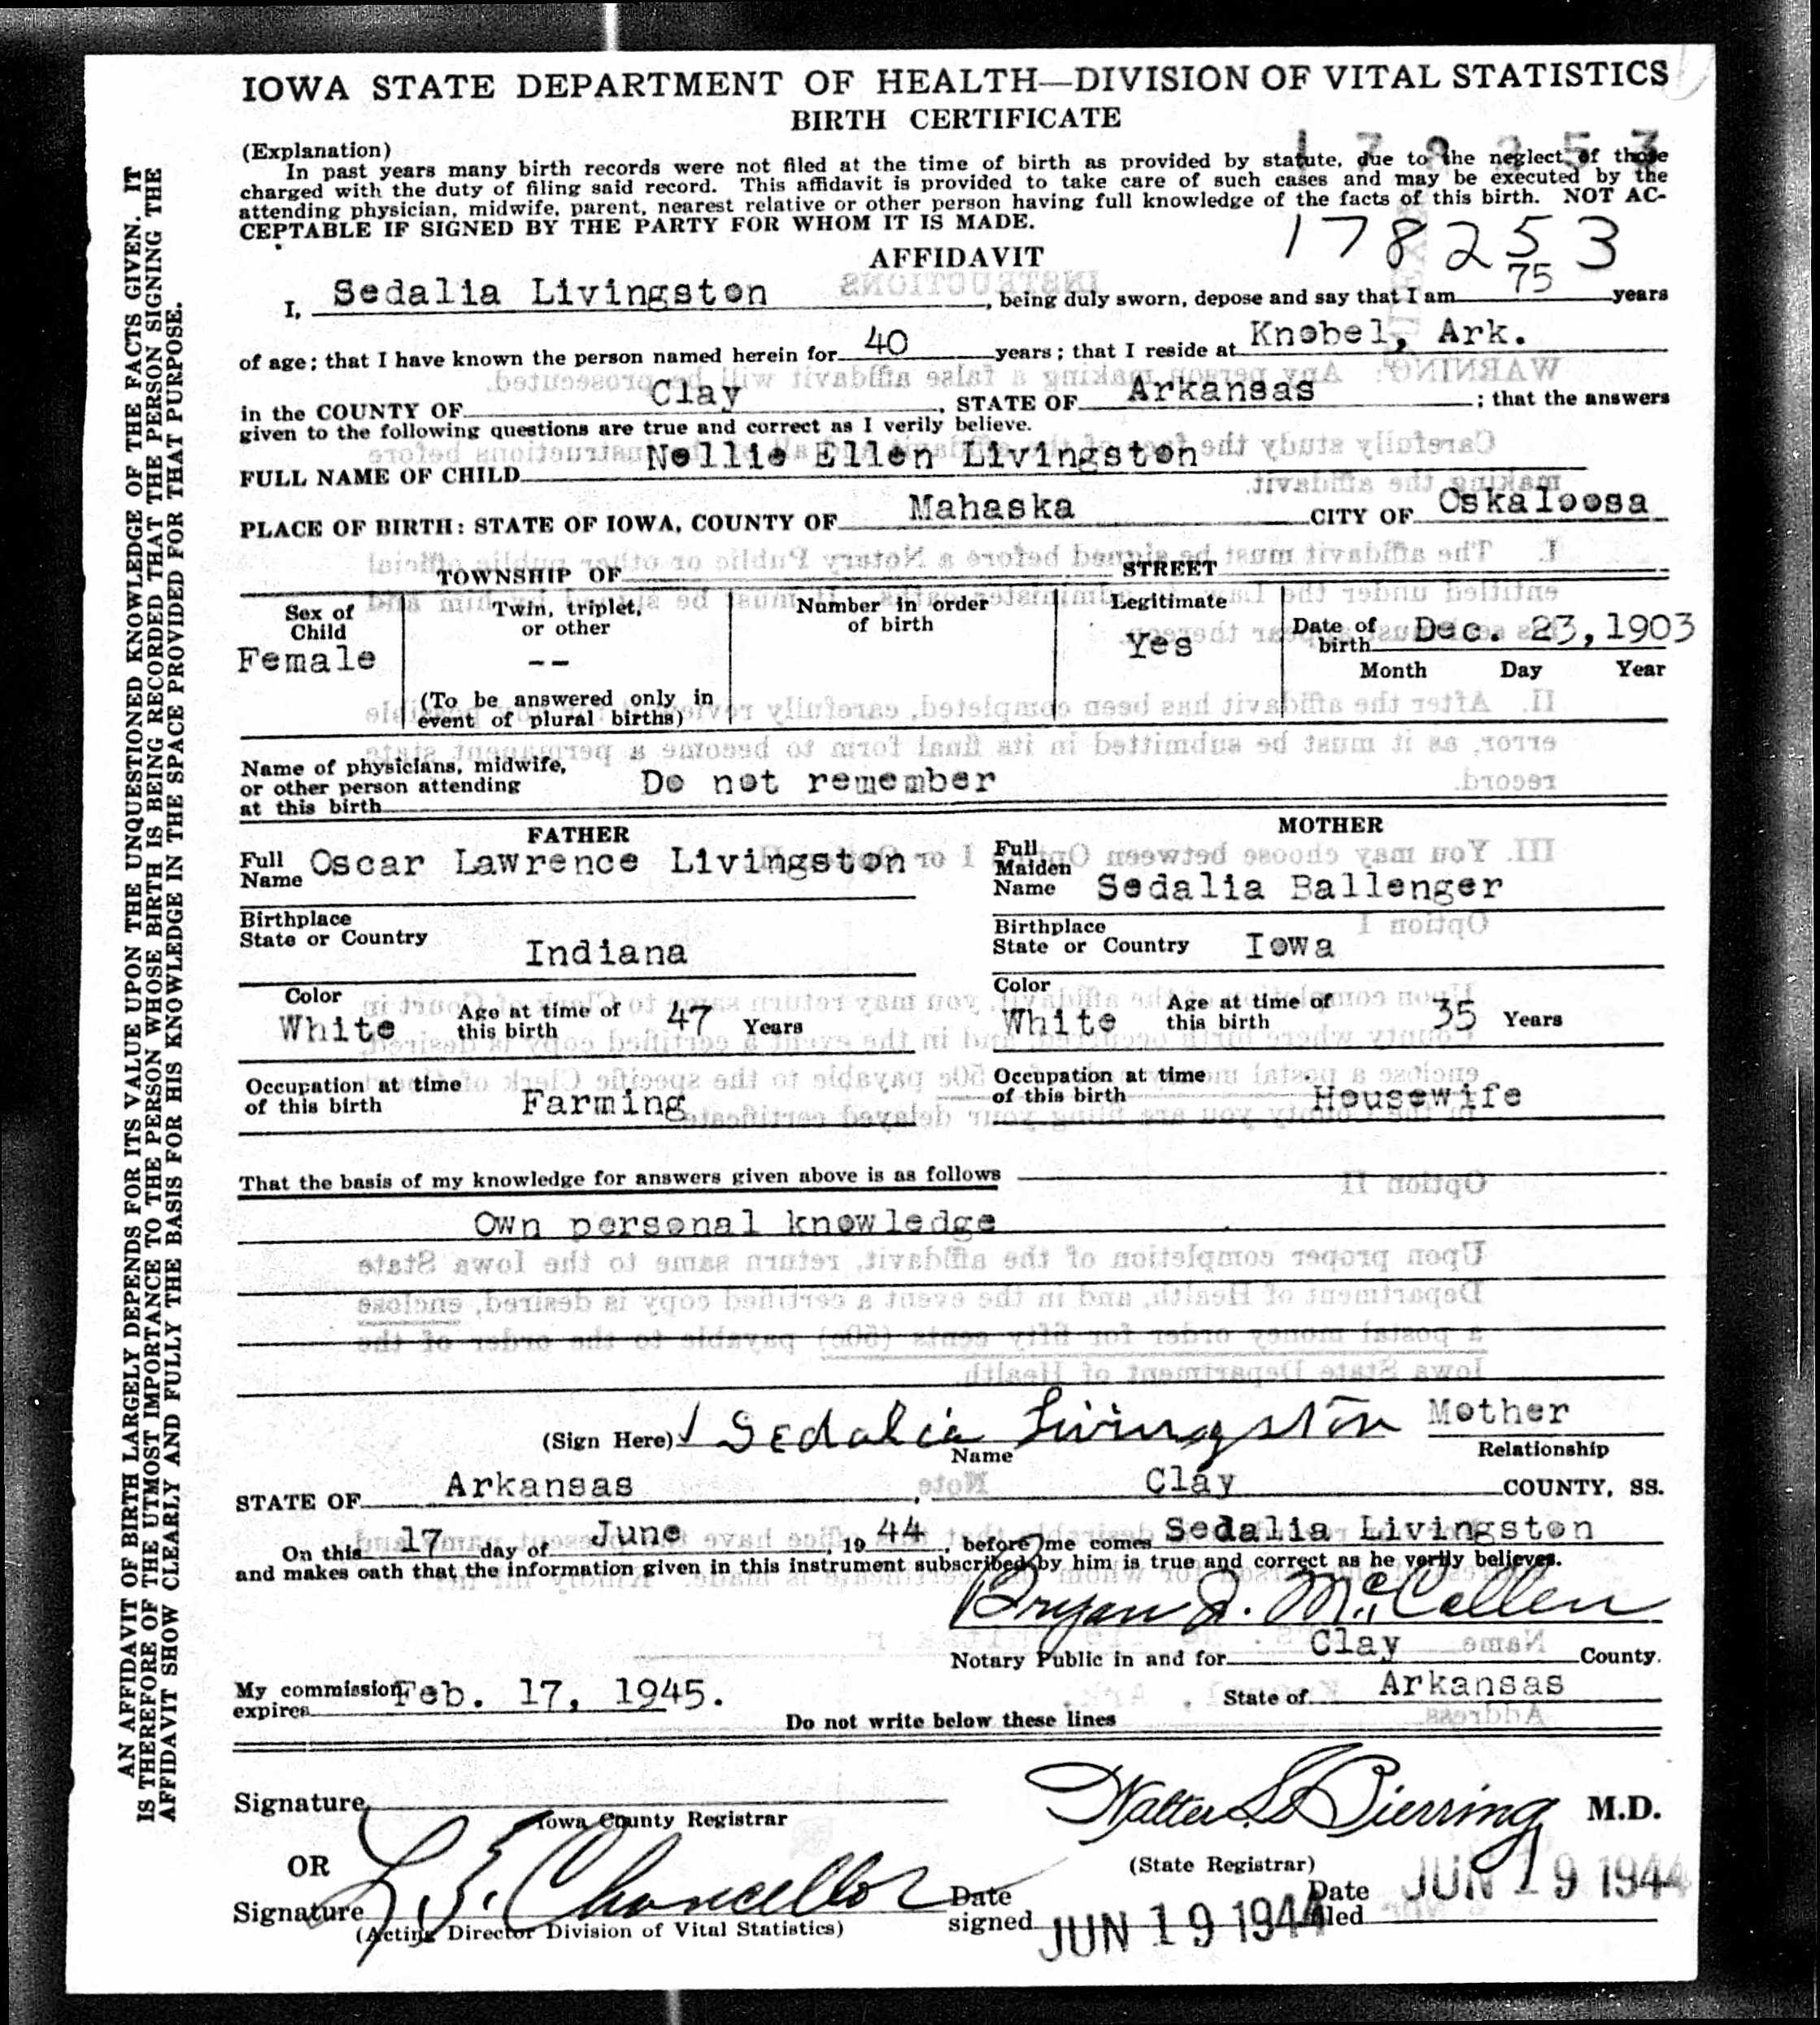 IOWA STATE DEPARTMENT OF HEALTH—DIVISION OF VITAL STATISTICS
BIRTH CERTIFICATE
(Explanation)
In past years many birth records were not filed at the time of birth as provided by statute, due to the neglect of those
charged with the duty of filing said record. This affidavit is provided to take care of such cases and may be executed by the
attending physician, midwife, parent, nearest relative or other person having full knowledge of the facts of this birth. NOT AC-
CEPTABLE IF SIGNED BY THE PARTY FOR WHOM IT IS MADE.
178253
AFFIDAVIT
I, Sedalia Livingston, being duly sworn, depose and say that I am 75 years
of age; that I have known the person named herein for 40 years; that I reside at Knobel, Ark.
in the COUNTY OF Clay, STATE OF Arkansas; that the answers
given to the following questions are true and correct as I verily believe.
FULL NAME OF CHILD Nellie Ellen Livingston
PLACE OF BIRTH: STATE OF IOWA, COUNTY OF Mahaska CITY OF Oskaloosa
TOWNSHIP OF STREET
Sex of Child Female
Twin, triplet, or other --
(To be answered only in event of plural births)
Number in order of birth
Legitimate Yes
Date of birth Dec. 23, 1903
Month Day Year
Name of physicians, midwife,
or other person attending Do not remember
at this birth
FATHER
Full Name Oscar Lawrence Livingston
Birthplace
State or Country Indiana
Color White Age at time of this birth 47 Years
Occupation at time of this birth Farming
MOTHER
Full Maiden Name Sedalia Ballenger
Birthplace
State or Country Iowa
Color White Age at time of this birth 35 Years
Occupation at time of this birth Housewife
That the basis of my knowledge for answers given above is as follows
Own personal knowledge
(Sign Here) Sedalia Livingston Mother
Name Relationship
STATE OF Arkansas, Clay COUNTY, SS.
On this 17 day of June, 1944, before me comes Sedalia Livingston
and makes oath that the information given in this instrument subscribed by him is true and correct as he verily believes.
Bryan J. McCallen
Notary Public in and for Clay County.
My commission expires Feb. 17, 1945. State of Arkansas
Do not write below these lines
Signature
Iowa County Registrar
Walter L. Bierring M.D.
(State Registrar)
OR
Signature L E Chancellor
(Acting Director Division of Vital Statistics)
Date signed JUN 19 1944
Date filed JUN 19 1944
AN AFFIDAVIT OF BIRTH LARGELY DEPENDS FOR ITS VALUE UPON THE UNQUESTIONED KNOWLEDGE OF THE FACTS GIVEN. IT
IS THEREFORE OF THE UTMOST IMPORTANCE TO THE PERSON WHOSE BIRTH IS BEING RECORDED THAT THE PERSON SIGNING THE
AFFIDAVIT SHOW CLEARLY AND FULLY THE BASIS FOR HIS KNOWLEDGE IN THE SPACE PROVIDED FOR THAT PURPOSE.